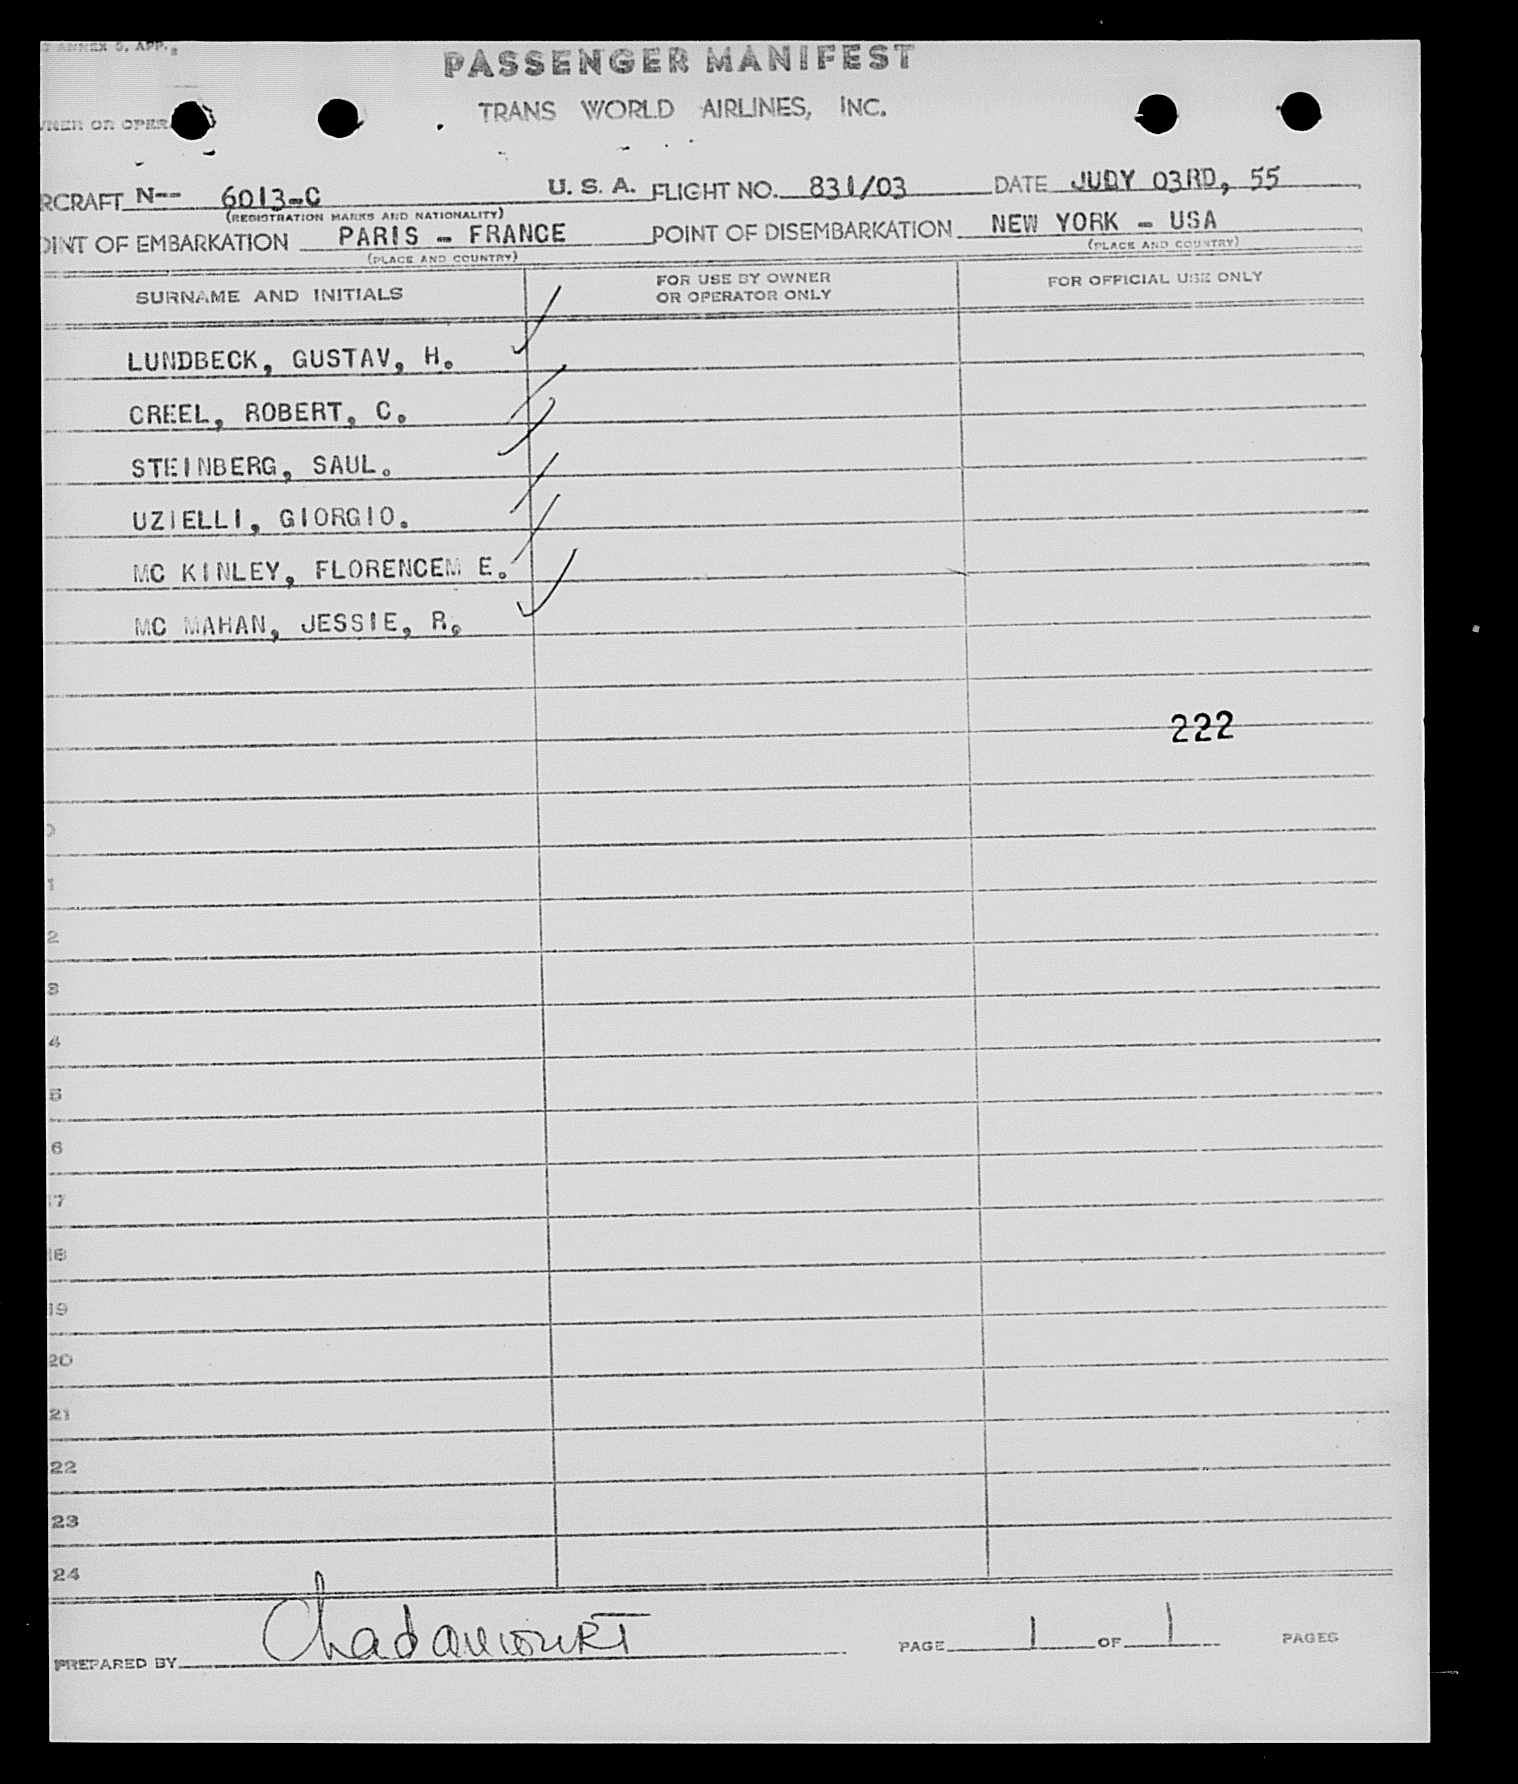 ANNEX 9, APP.
PASSENGER MANIFEST
TRANS WORLD AIRLINES, INC.
NER OR OPER
RCRAFT N-- 6013-C U. S. A. FLIGHT NO. 831/03 DATE JUDY 03RD, 55
(REGISTRATION MARKS AND NATIONALITY)
OINT OF EMBARKATION PARIS - FRANCE POINT OF DISEMBARKATION NEW YORK - USA
(PLACE AND COUNTRY) (PLACE AND COUNTRY)
SURNAME AND INITIALS FOR USE BY OWNER OR OPERATOR ONLY FOR OFFICIAL USE ONLY
LUNDBECK, GUSTAV, H.
CREEL, ROBERT, C.
STEINBERG, SAUL.
UZIELLI, GIORGIO.
MC KINLEY, FLORENCEM E.
MC MAHAN, JESSIE, R.
222
0
1
2
3
4
5
6
17
18
19
20
21
22
23
24
PREPARED BY PAGE 1 OF 1 PAGES